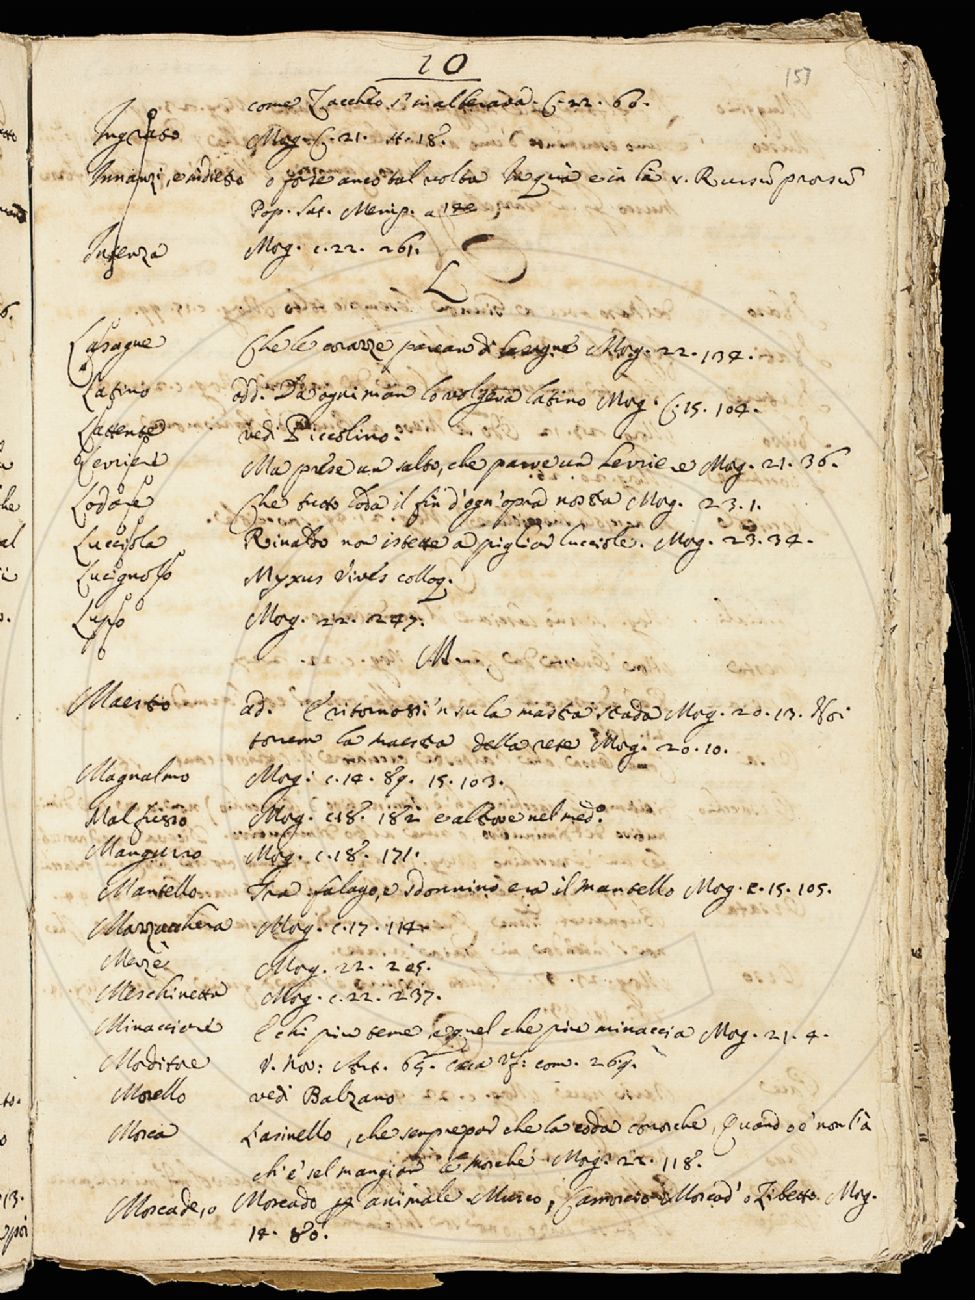 10
151
come Zaccheo s'inalberava. C. 22. 60.
Ingrato Mog. C. 21. st. 18.
Innanzi, e indietro o forse anco tal volta In quà e in là v. Rursũ prorsũ
Pop. Sat. Menip. a
Mog. c. 22. 261.
L
Lasagne Che le corazze parean di lasagne Mog. 22. 134.
Latino add. Da ogni man lo volgeva latino Mog. C. 15. 104.
Lattente vedi Piccolino.
Levriere Ma prese un salto, che parve un Levrie-e Mog. 21. 36.
Lodare Che tutto loda il fin d'ogn'opra nostra Mog. 23. 1.
Lucciola Rinaldo non istette a pigliar lucciole. Mog. 23. 34.
Lucignolo Myxus Vives colloq.
Mog. 22. 247.
M
Maestro ad. E ritornossi 'n su la mastra strada Mog. 20. 13. Noi
torrem la maestra della rete Mog. 20. 10.
Magnalmo Mog. c. 14. 89. 15. 103.
Malfusso Mog. c. 18. 182 e altrove nel med.º
Manguiro Mog. c. 18. 171.
Mantello Fra falago, e sdonnino era il mantello Mog. c. 15. 105.
Mazzacchera Mog. c. 17. 114.
Merzè Mog. 22. 205.
Meschinetta Mog. c. 22. 237.
Minacciare E chi piu teme è quel che piu minaccia Mog. 21. 4.
Morditore V. Nov: Ant. 69.
Morello vedi Balzano
Morca L'asinello, che sempre par che la coda conosche, Quando e' non l'à
ch'è sel mangion le mosche Mog. 22. 118.
Moscade, o Moscado animale Musco, Camorcio Moscad' o Zibetto. Mog.
14. 80.